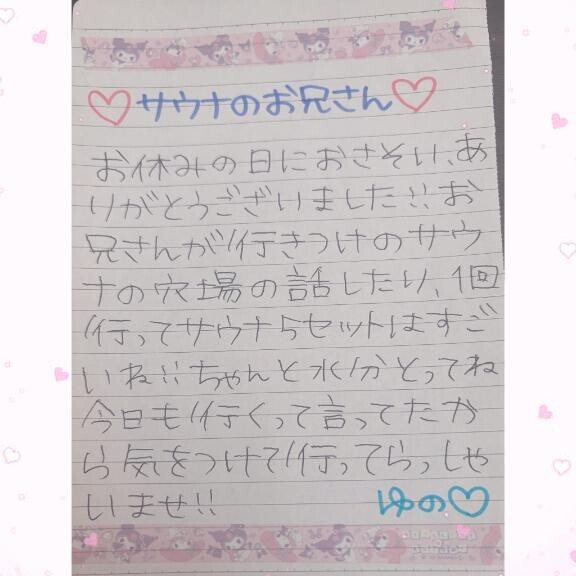 ♡サウナのお兄さん♡
お休みの日におさそい、あ
りがとうございました!!お
兄さんが行きつけのサウ
ナの穴場の話したり、1回
行ってサウナ5セットはすご
いね!!ちゃんと水分とってね
今日も行くって言ってたか
ら気をつけて行ってらっしゃ
いませ!!
ゆの♡